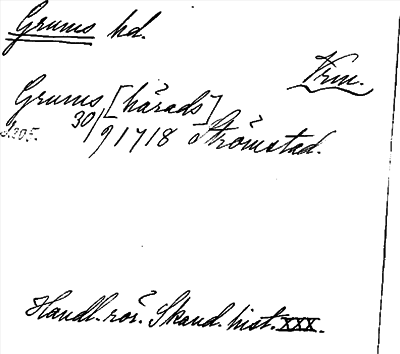 Grums hd.
Vrm.
Grums [härads]
s. 205. 30/9 1718 Strömstad.
Handl. rör. Skand. hist. XXX.